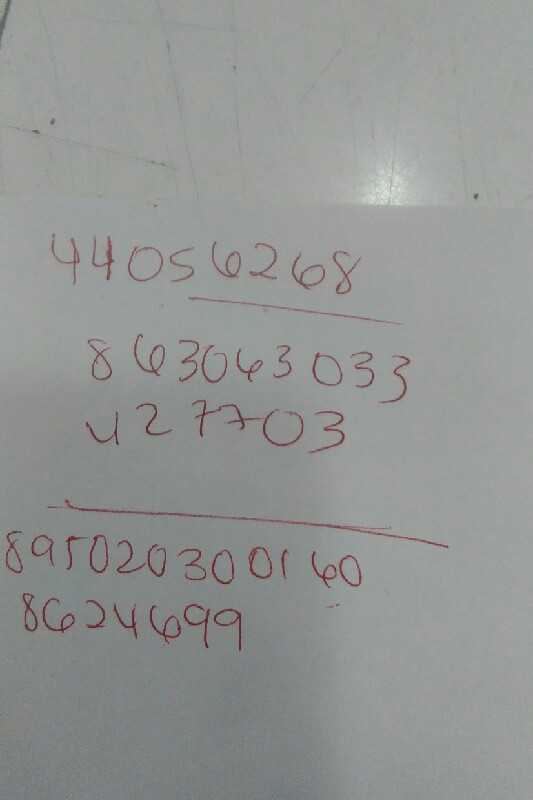 44056268
863063033
427703
895020300160
8624699